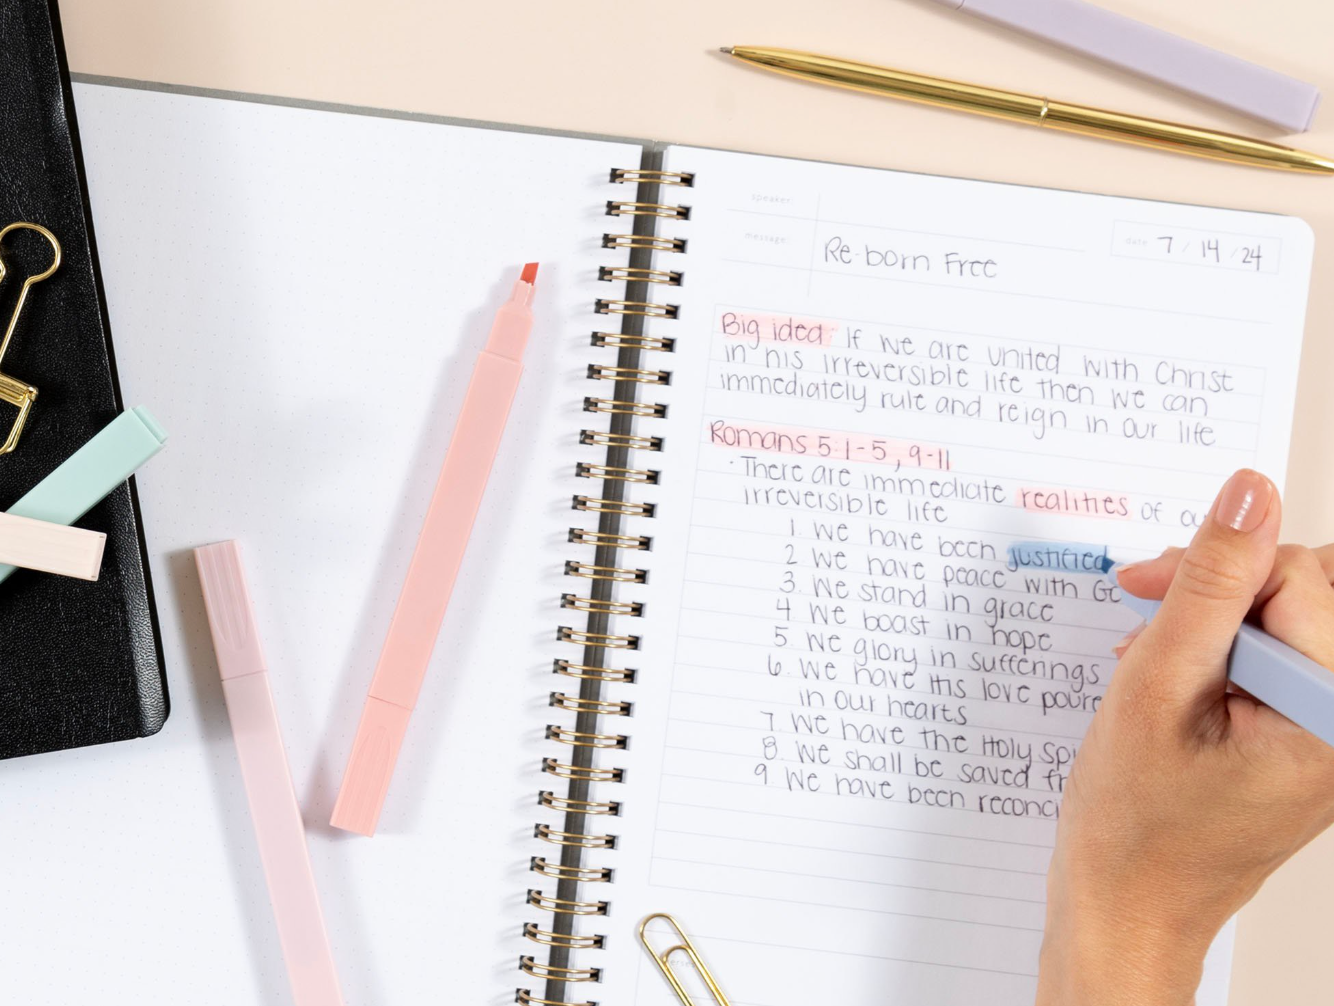 speaker:
message: Re-born Free
date 7 / 14 / 24
Big idea: If we are united with Christ
in his irreversible life then we can
immediately rule and reign in our life
Romans 5:1-5, 9-11
· There are immediate realities of
irreversible life
1. We have been justified
2 We have peace with
3. We stand in grace
4 We boast in hope
5 We glory in sufferings
6. We have His love
in our hearts
7 We have the Holy
8. We shall be saved
9. We have been